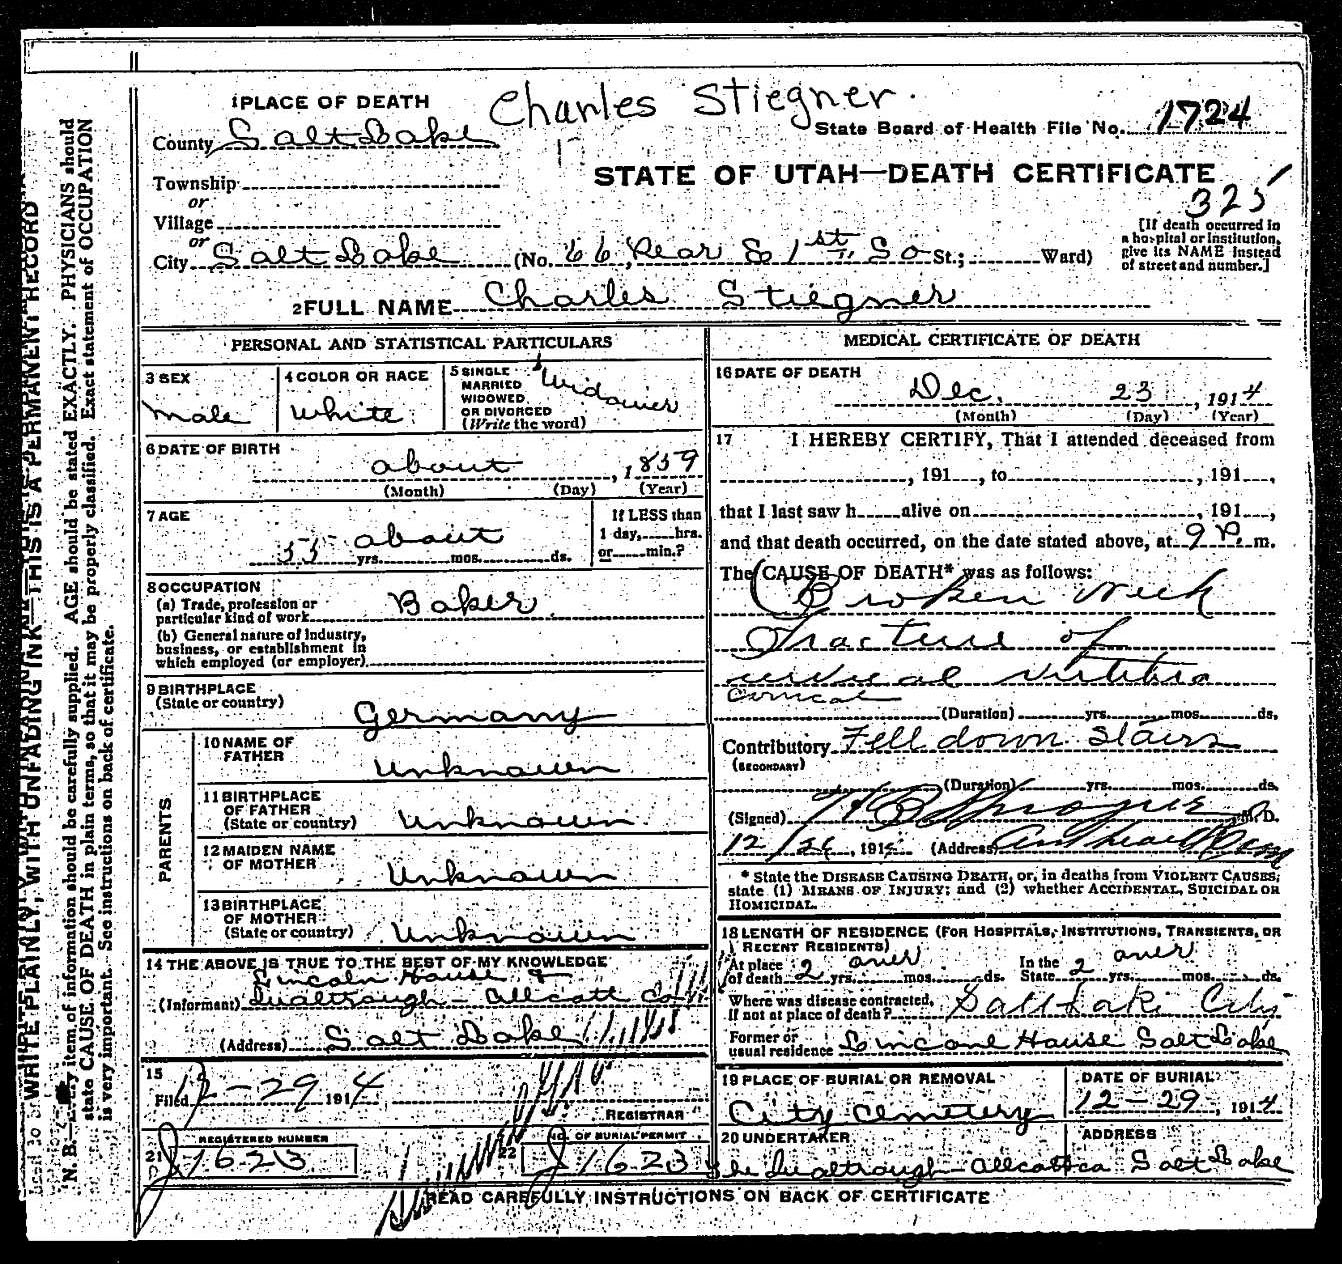 Charles Stiegner.
1 PLACE OF DEATH
County Salt Lake
State Board of Health File No. 1724
STATE OF UTAH—DEATH CERTIFICATE
325
Township
or
Village
or
City Salt Lake (No. 66, Rear E 1st So St.; Ward)
[If death occurred in a hospital or institution, give its NAME instead of street and number.]
2 FULL NAME Charles Stiegner
PERSONAL AND STATISTICAL PARTICULARS
3 SEX
Male
4 COLOR OR RACE
White
5 SINGLE
MARRIED
WIDOWED
OR DIVORCED
(Write the word)
Widower
6 DATE OF BIRTH
about , 1859
(Month) (Day) (Year)
7 AGE
about
55 yrs. mos. ds.
If LESS than
1 day, hrs.
or min.?
8 OCCUPATION
(a) Trade, profession or
particular kind of work Baker
(b) General nature of Industry,
business, or establishment in
which employed (or employer)
9 BIRTHPLACE
(State or country)
Germany
PARENTS
10 NAME OF
FATHER
Unknown
11 BIRTHPLACE
OF FATHER
(State or country) Unknown
12 MAIDEN NAME
OF MOTHER
Unknown
13 BIRTHPLACE
OF MOTHER
(State or country) Unknown
14 THE ABOVE IS TRUE TO THE BEST OF MY KNOWLEDGE
Lincoln House &
(Informant)
(Address) Salt Lake
15
Filed 12-29 1914
REGISTRAR
21 REGISTERED NUMBER
J1623
22 NO. OF BURIAL PERMIT
J1623
MEDICAL CERTIFICATE OF DEATH
16 DATE OF DEATH
Dec. 23, 1914
(Month) (Day) (Year)
17 I HEREBY CERTIFY, That I attended deceased from
, 191 , to , 191 ,
that I last saw h alive on , 191 ,
and that death occurred, on the date stated above, at 9 P. m.
The CAUSE OF DEATH* was as follows:
Broken neck
Fracture of
cervical vertebra
Cervical
(Duration) yrs. mos. ds.
Contributory Fell down stairs
(SECONDARY)
(Duration) yrs. mos. ds.
(Signed) M. D.
12/26, 191 (Address)
* State the DISEASE CAUSING DEATH, or, in deaths from VIOLENT CAUSES,
state (1) MEANS OF INJURY; and (2) whether ACCIDENTAL, SUICIDAL OR
HOMICIDAL.
18 LENGTH OF RESIDENCE (FOR HOSPITALS, INSTITUTIONS, TRANSIENTS, OR
RECENT RESIDENTS)
over over
At place of death 2 yrs. mos. ds. In the State 2 yrs. mos. ds.
Where was disease contracted,
If not at place of death? Salt Lake City
Former or
usual residence House Salt Lake
19 PLACE OF BURIAL OR REMOVAL
City Cemetery
DATE OF BURIAL
12-29, 1914
20 UNDERTAKER
ADDRESS
Salt Lake
READ CAREFULLY INSTRUCTIONS ON BACK OF CERTIFICATE
WRITE PLAINLY, WITH UNFADING INK—THIS IS A PERMANENT RECORD
N. B.—Every item of information should be carefully supplied. AGE should be stated EXACTLY. PHYSICIANS should
state CAUSE OF DEATH in plain terms, so that it may be properly classified. Exact statement of OCCUPATION
is very important. See instructions on back of certificate.